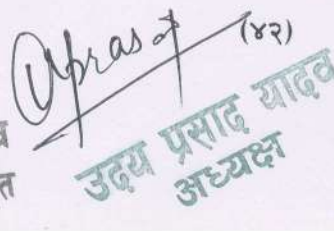 (४२)
उदय प्रसाद यादव
अध्यक्ष